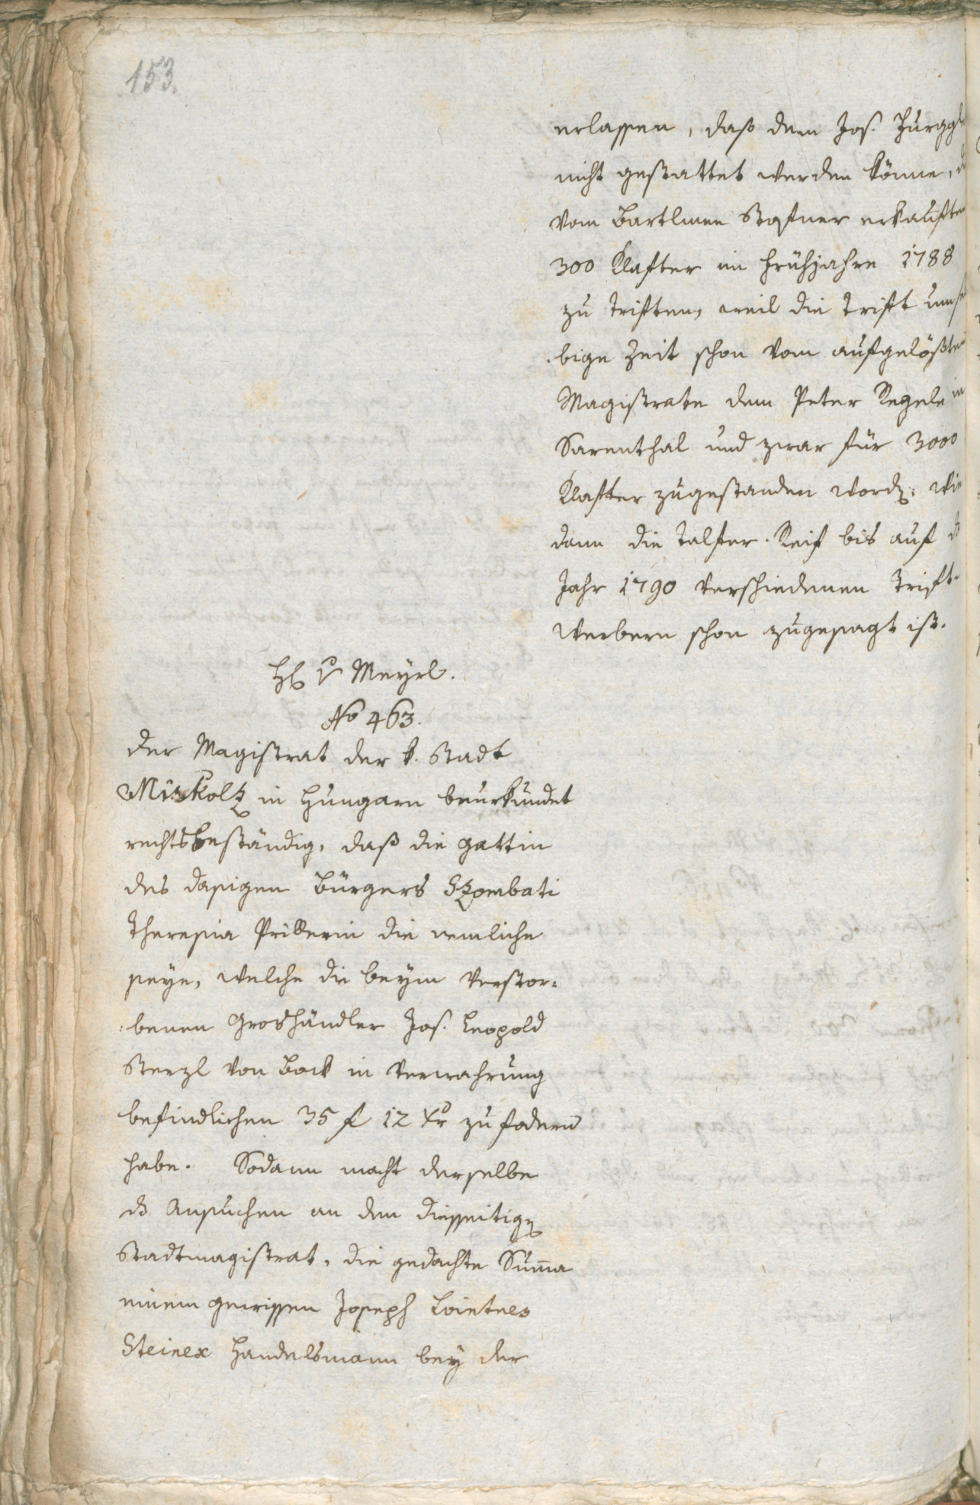 153.
erlassen, daß dem Jos. Zurggl
nicht gestattet werden könne, d
vom Bartlmee Stofner erkauften
300 Klafter im Frühjahre 1788
zu triften, weil die Trift um s
bige Zeit schon vom aufgelößten
Magistrate dem Peter Regele in
Sarenthal und zwar für 3000
Klafter zugestanden word. wie
dann die Talfer-Reif bis auf ds
Jahr 1790 verschiedenen Trift-
werbern schon zugesagt ist.
H v Meyrl.
No 463.
Der Magistrat der k. Stadt
Miskoltz in Hungarn beurkundet
rechtsbeständig, daß die Gattin
des dasigen Bürgers Szombati
Theresia Prillerin die nemliche
seye, welche die beym verstor-
benen Großhändler Jos. Leopold
Sterzl von Bock in Verwahrung
befindlichen 35 f 12 xr zu fodern
habe. Sodann macht derselbe
ds Ansuchen an den diesseitig
Stadtmagistrat, die gedachte Summa
einem gewissen Joseph
Steiner Handelsmann bey der